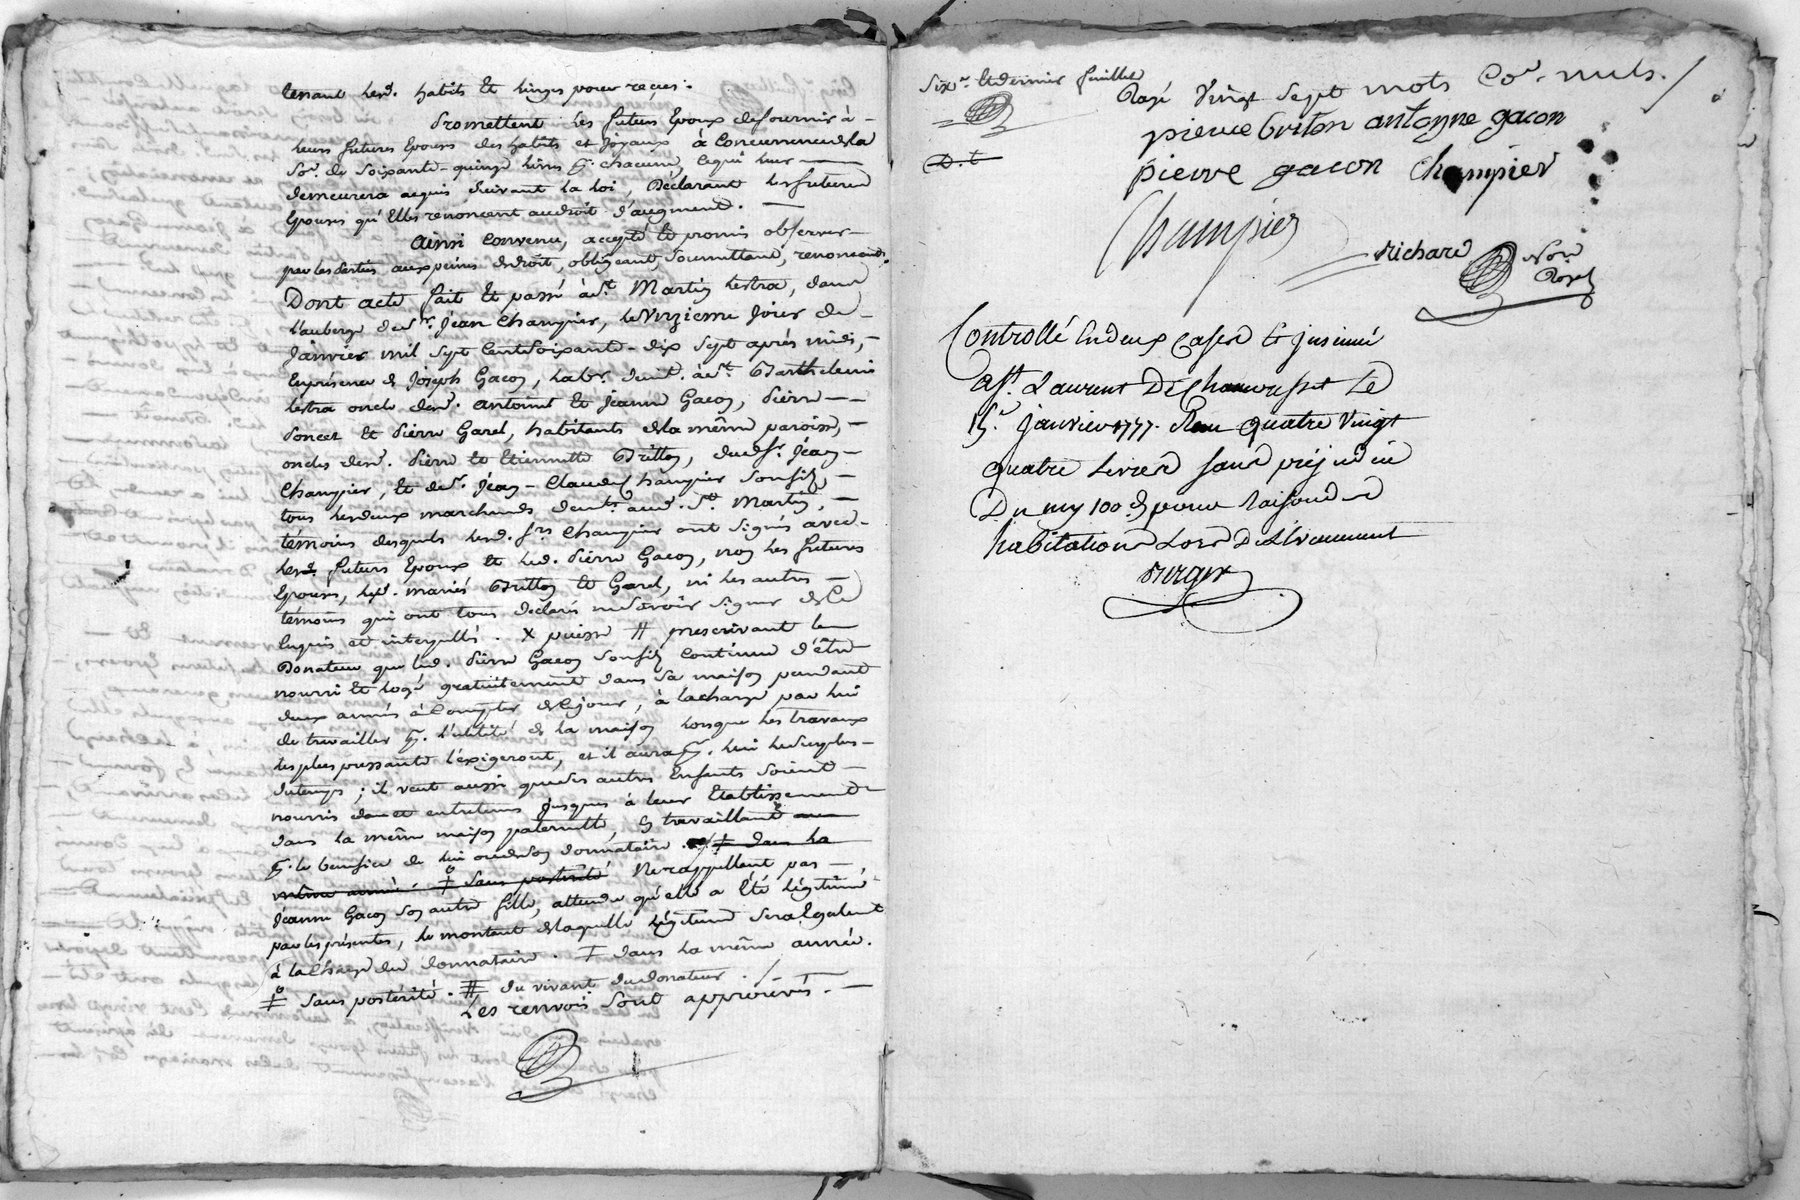 tenant lesd. habits et linges pour reçus.
Promettent les futurs Epoux de fournir à
leurs futures Epouses des habits et joyaux à Concurrence de la
Sor. de Soixante-quinze livres pr. chacune, ce qui leur
demeurera acquis Suivant la loi, Déclarant les futures
Epouses qu'Elles renoncent au droit d'augment.
Ainsi Convenu, accepté et promis observer
par les parties aux peines de droit, obligeant, Soumettant, renonceant.
Dont acte fait et passé à St. Martin lestra, dans
l'auberge de sr. Jean Champier, le onzieme Jour de
Janvier mil Sept Cent Soixante-dix Sept après midi,
En présence de Joseph Gacon, labr. demt. à St. Barthelemi
lestra oncle desd. antoine et Jeanne Gacon, Pierre
Poncet et Pierre Garel, habitants de la même paroisse,
oncles desd. Pierre et Etiennette Britton, dud. Sr. Jean
Champier, et de Sr. Jean-Claude Champier Son fils,
tous les deux marchands demts. aud. St. Martin,
témoins desquels lesd. Srs. Champier ont Signés avec
lesd. futurs Epoux et led. Pierre Gacon, non les futures
Epouses, lesd. mariés Britton et Garel, ni les autres
témoins qui ont tous déclaré ne Savoir Signer de Ce
Enquis et interpellés. X puisse # prescrivant le
Donateur que led. Pierre Gacon Son fils Continue d'être
nourri et logé gratuitement dans Sa maison pendant
deux années à Compter de Ce jour, à la charge par lui
de travailler pr. l'utilité de la maison lorsque les travaux
les plus pressants l'exigeront, et il aura pr. lui le Surplus
du temps; il veut aussi que Ses autres Enfants Soient
nourris et entretenus jusques à leur Etablissement
dans la même maison paternelle, En travaillant
pr. le benefice de lui ou de Son donnataire. ‡ dans la
même année. ‡ Sans postérité Ne rappellant pas
Jeanne Gacon Son autre fille, attendu qu'elle a Eté légitimée
par les présentes, le montant de laquelle légitime Sera Egalement
à la Charge du donnataire. ‡ dans la même année.
‡ Sans postérité. # du vivant du donateur.
Les renvois Sont approuvés.
Sixe. et dernier feuillet
D. t
Rayé Vingt Sept mots Coe. nuls.
pierre briton antoyne gacon
pierre gacon Champier
Champier
Richard Nore.
Royal
Controllé En deux Cases et insinué
a St. Laurent De Chamousset Le
15e. Janvier 1777. Reçu quatre Vingt
quatre Livres Sans prejudice
Du my 100e. pour Raison de
habitation Lors De L'Evenement
Burger